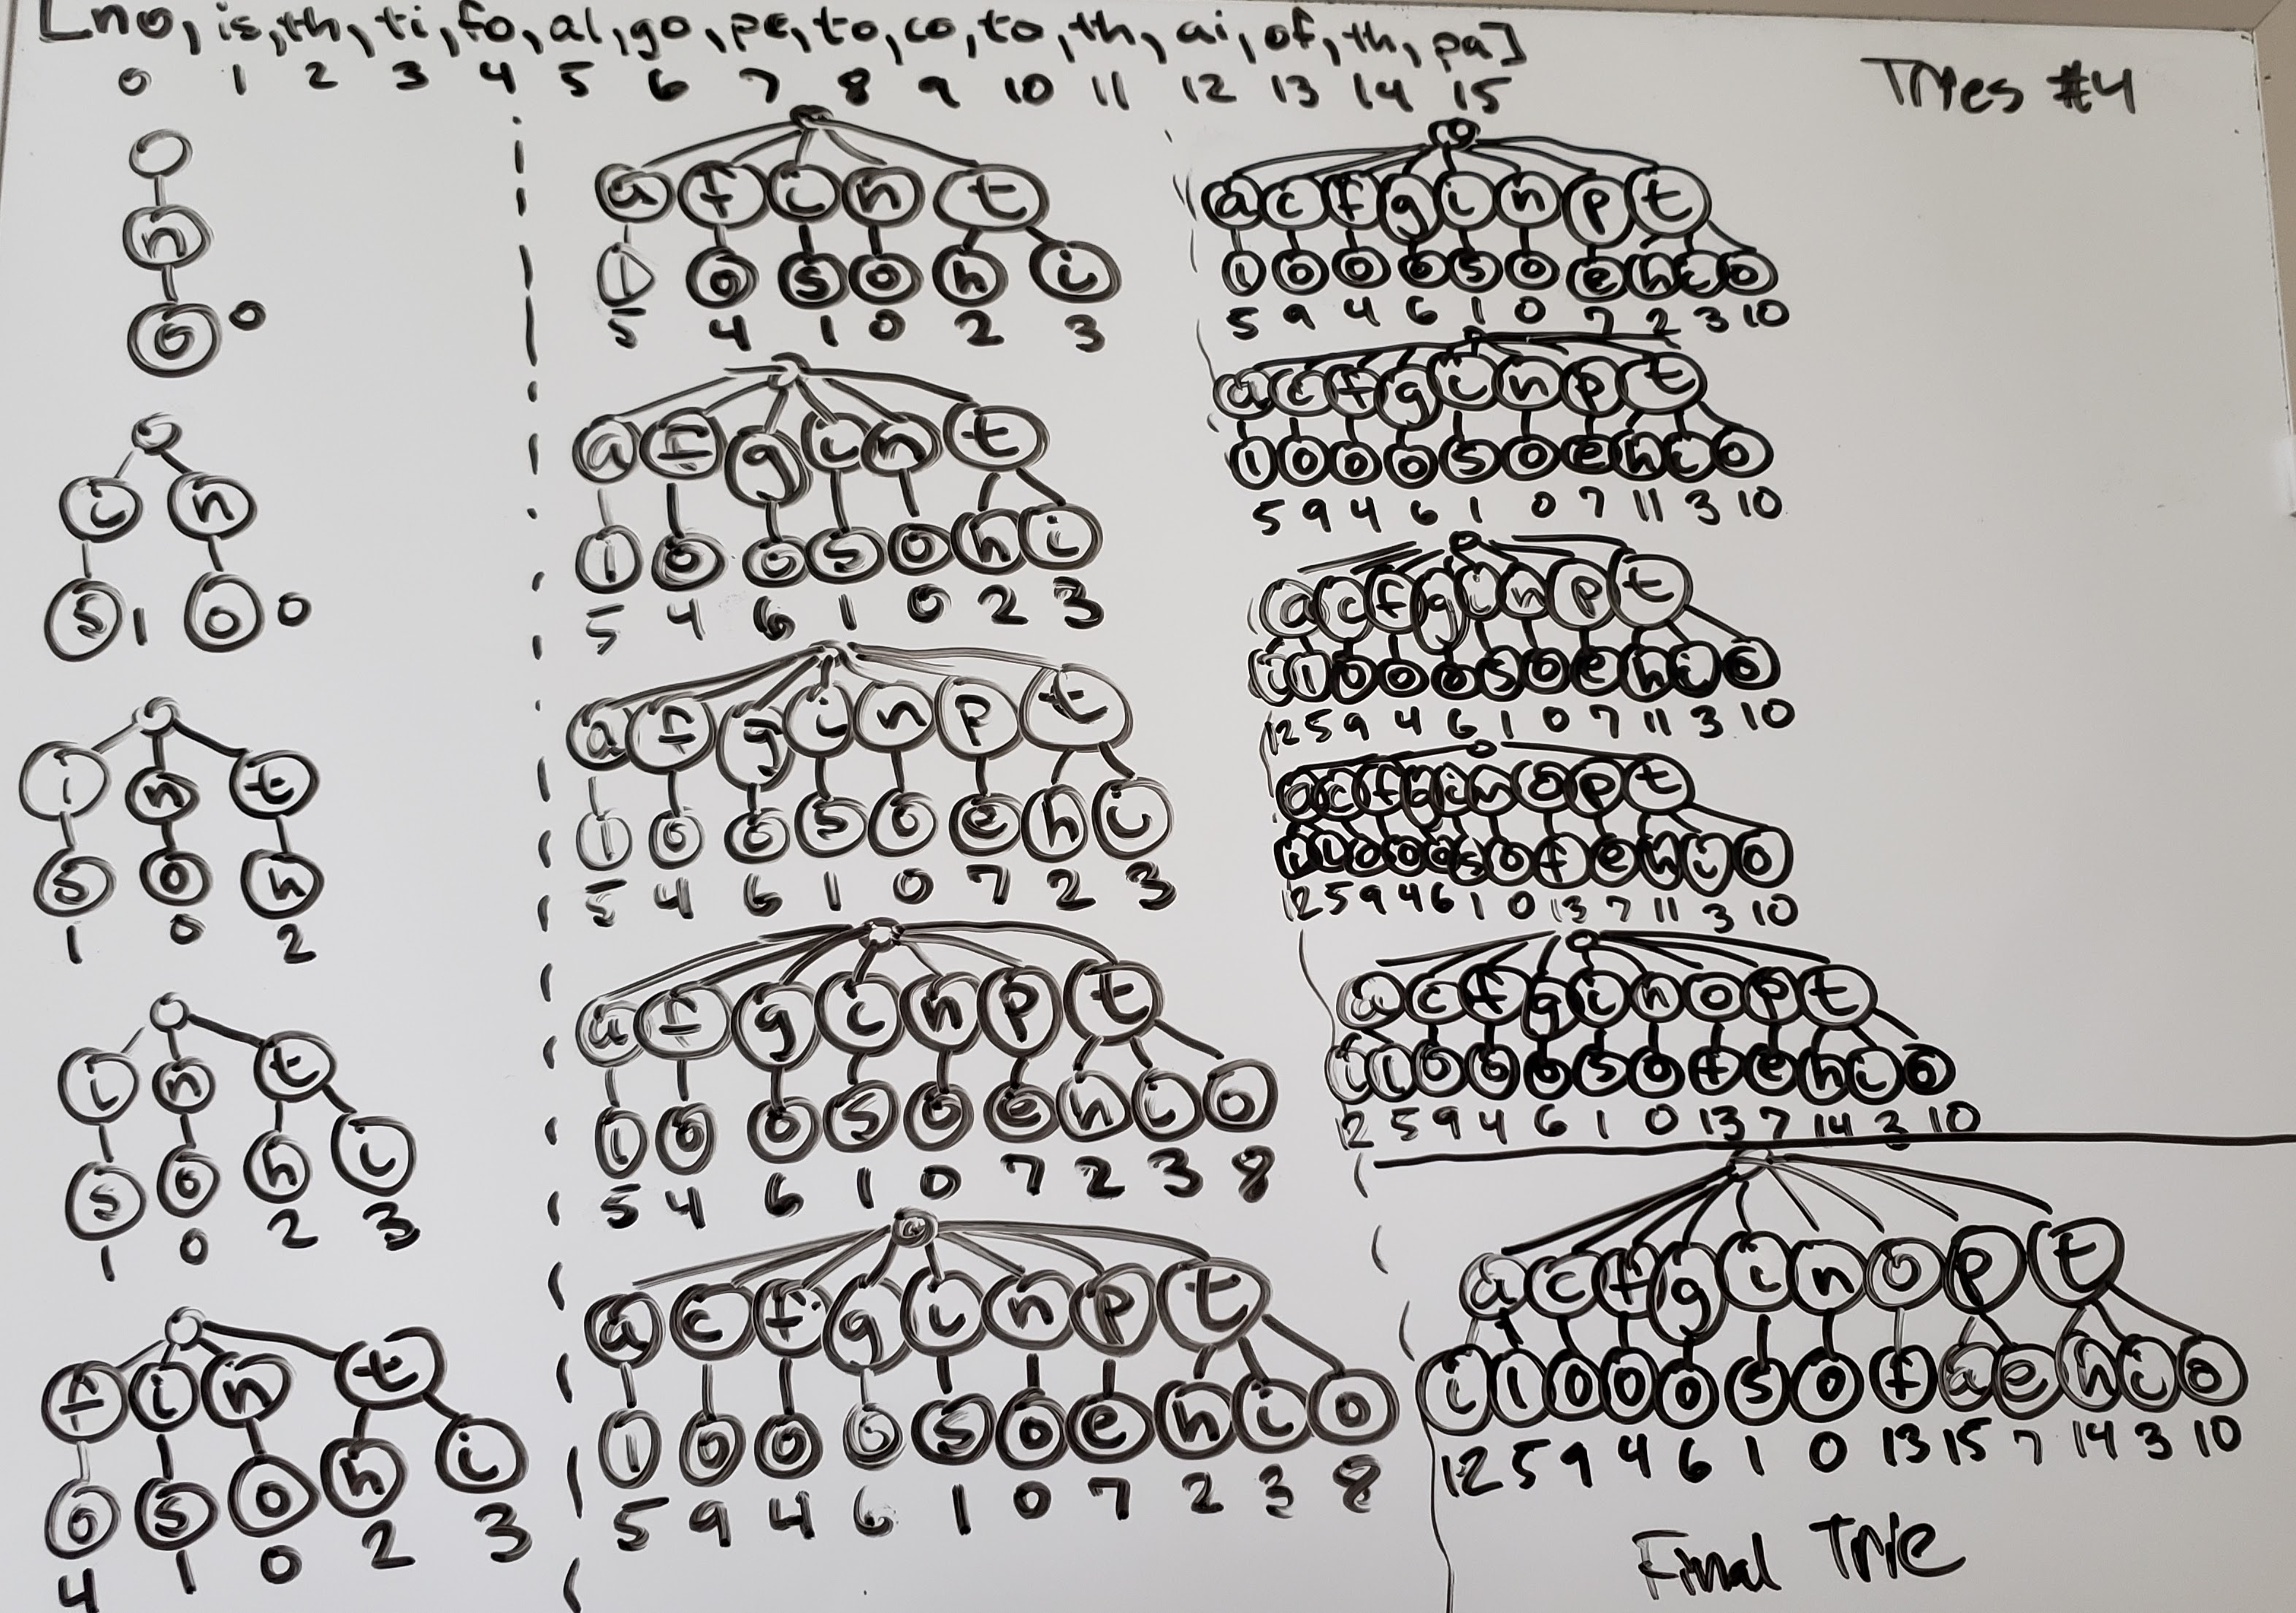 [no, is, th, ti, fo, al, go, pe, to, co, to, th, ai, of, th, pa]
0 1 2 3 4 5 6 7 8 9 10 11 12 13 14 15
Tries #4
n
o 0
i n
s 1 o 0
i n t
s o h
1 0 2
i n t
s o h i
1 0 2 3
f i n t
o s o h i
4 1 0 2 3
a f i n t
l o s o h i
5 4 1 0 2 3
a f g i n t
l o o s o h i
5 4 6 1 0 2 3
a f g i n p t
l o o s o e h i
5 4 6 1 0 7 2 3
a f g i n p t
l o o s o e h i o
5 4 6 1 0 7 2 3 8
a c f g i n p t
l o o o s o e h i o
5 9 4 6 1 0 7 2 3 8
a c f g i n p t
l o o o s o e h i o
5 9 4 6 1 0 7 2 3 10
a c f g i n p t
l o o o s o e h i o
5 9 4 6 1 0 7 11 3 10
a c f g i n p t
i l o o o s o e h i o
12 5 9 4 6 1 0 7 11 3 10
a c f g i n o p t
i l o o o s o f e h i o
12 5 9 4 6 1 0 13 7 11 3 10
a c f g i n o p t
i l o o o s o f e h i o
12 5 9 4 6 1 0 13 7 14 3 10
a c f g i n o p t
i l o o o s o f a e h i o
12 5 9 4 6 1 0 13 15 7 14 3 10
Final Trie